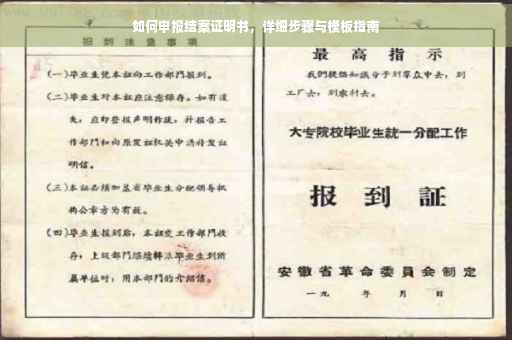 如何申报结案证明书，详细步骤与模板指南
报到注意事项
(一)毕业生凭本证向工作部门报到。
(二)毕业生对本证应注意保存。如有遗
失，应即登报声明作废，并报告工
作部门和向原发证机关申请补发证
明信。
(三)本证必须加盖省毕业生分配领导机
构公章方为有效。
(四)毕业生报到后，本证交工作部门收
存；上级部门继续转派毕业生到所
属单位时，用本部门的介绍信。
最高指示
我们提倡知识分子到羣众中去，到
工厂去，到农村去。
大专院校毕业生统一分配工作
报到証
安徽省革命委員会制定
一九 年 月 日